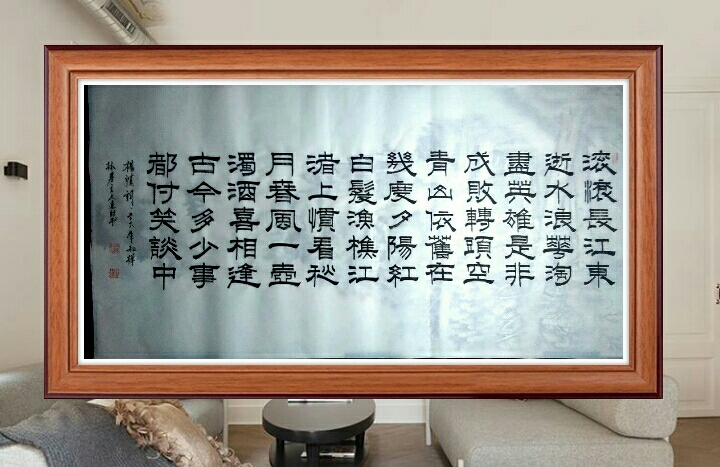 滚滚長江東
逝水浪華淘
盡英雄是非
成敗轉頭空
青山依舊在
幾度夕陽紅
白髮漁樵江
渚上慣看秋
月春風一壺
濁酒喜相逢
古今多少事
都付笑談中
楊慎詞